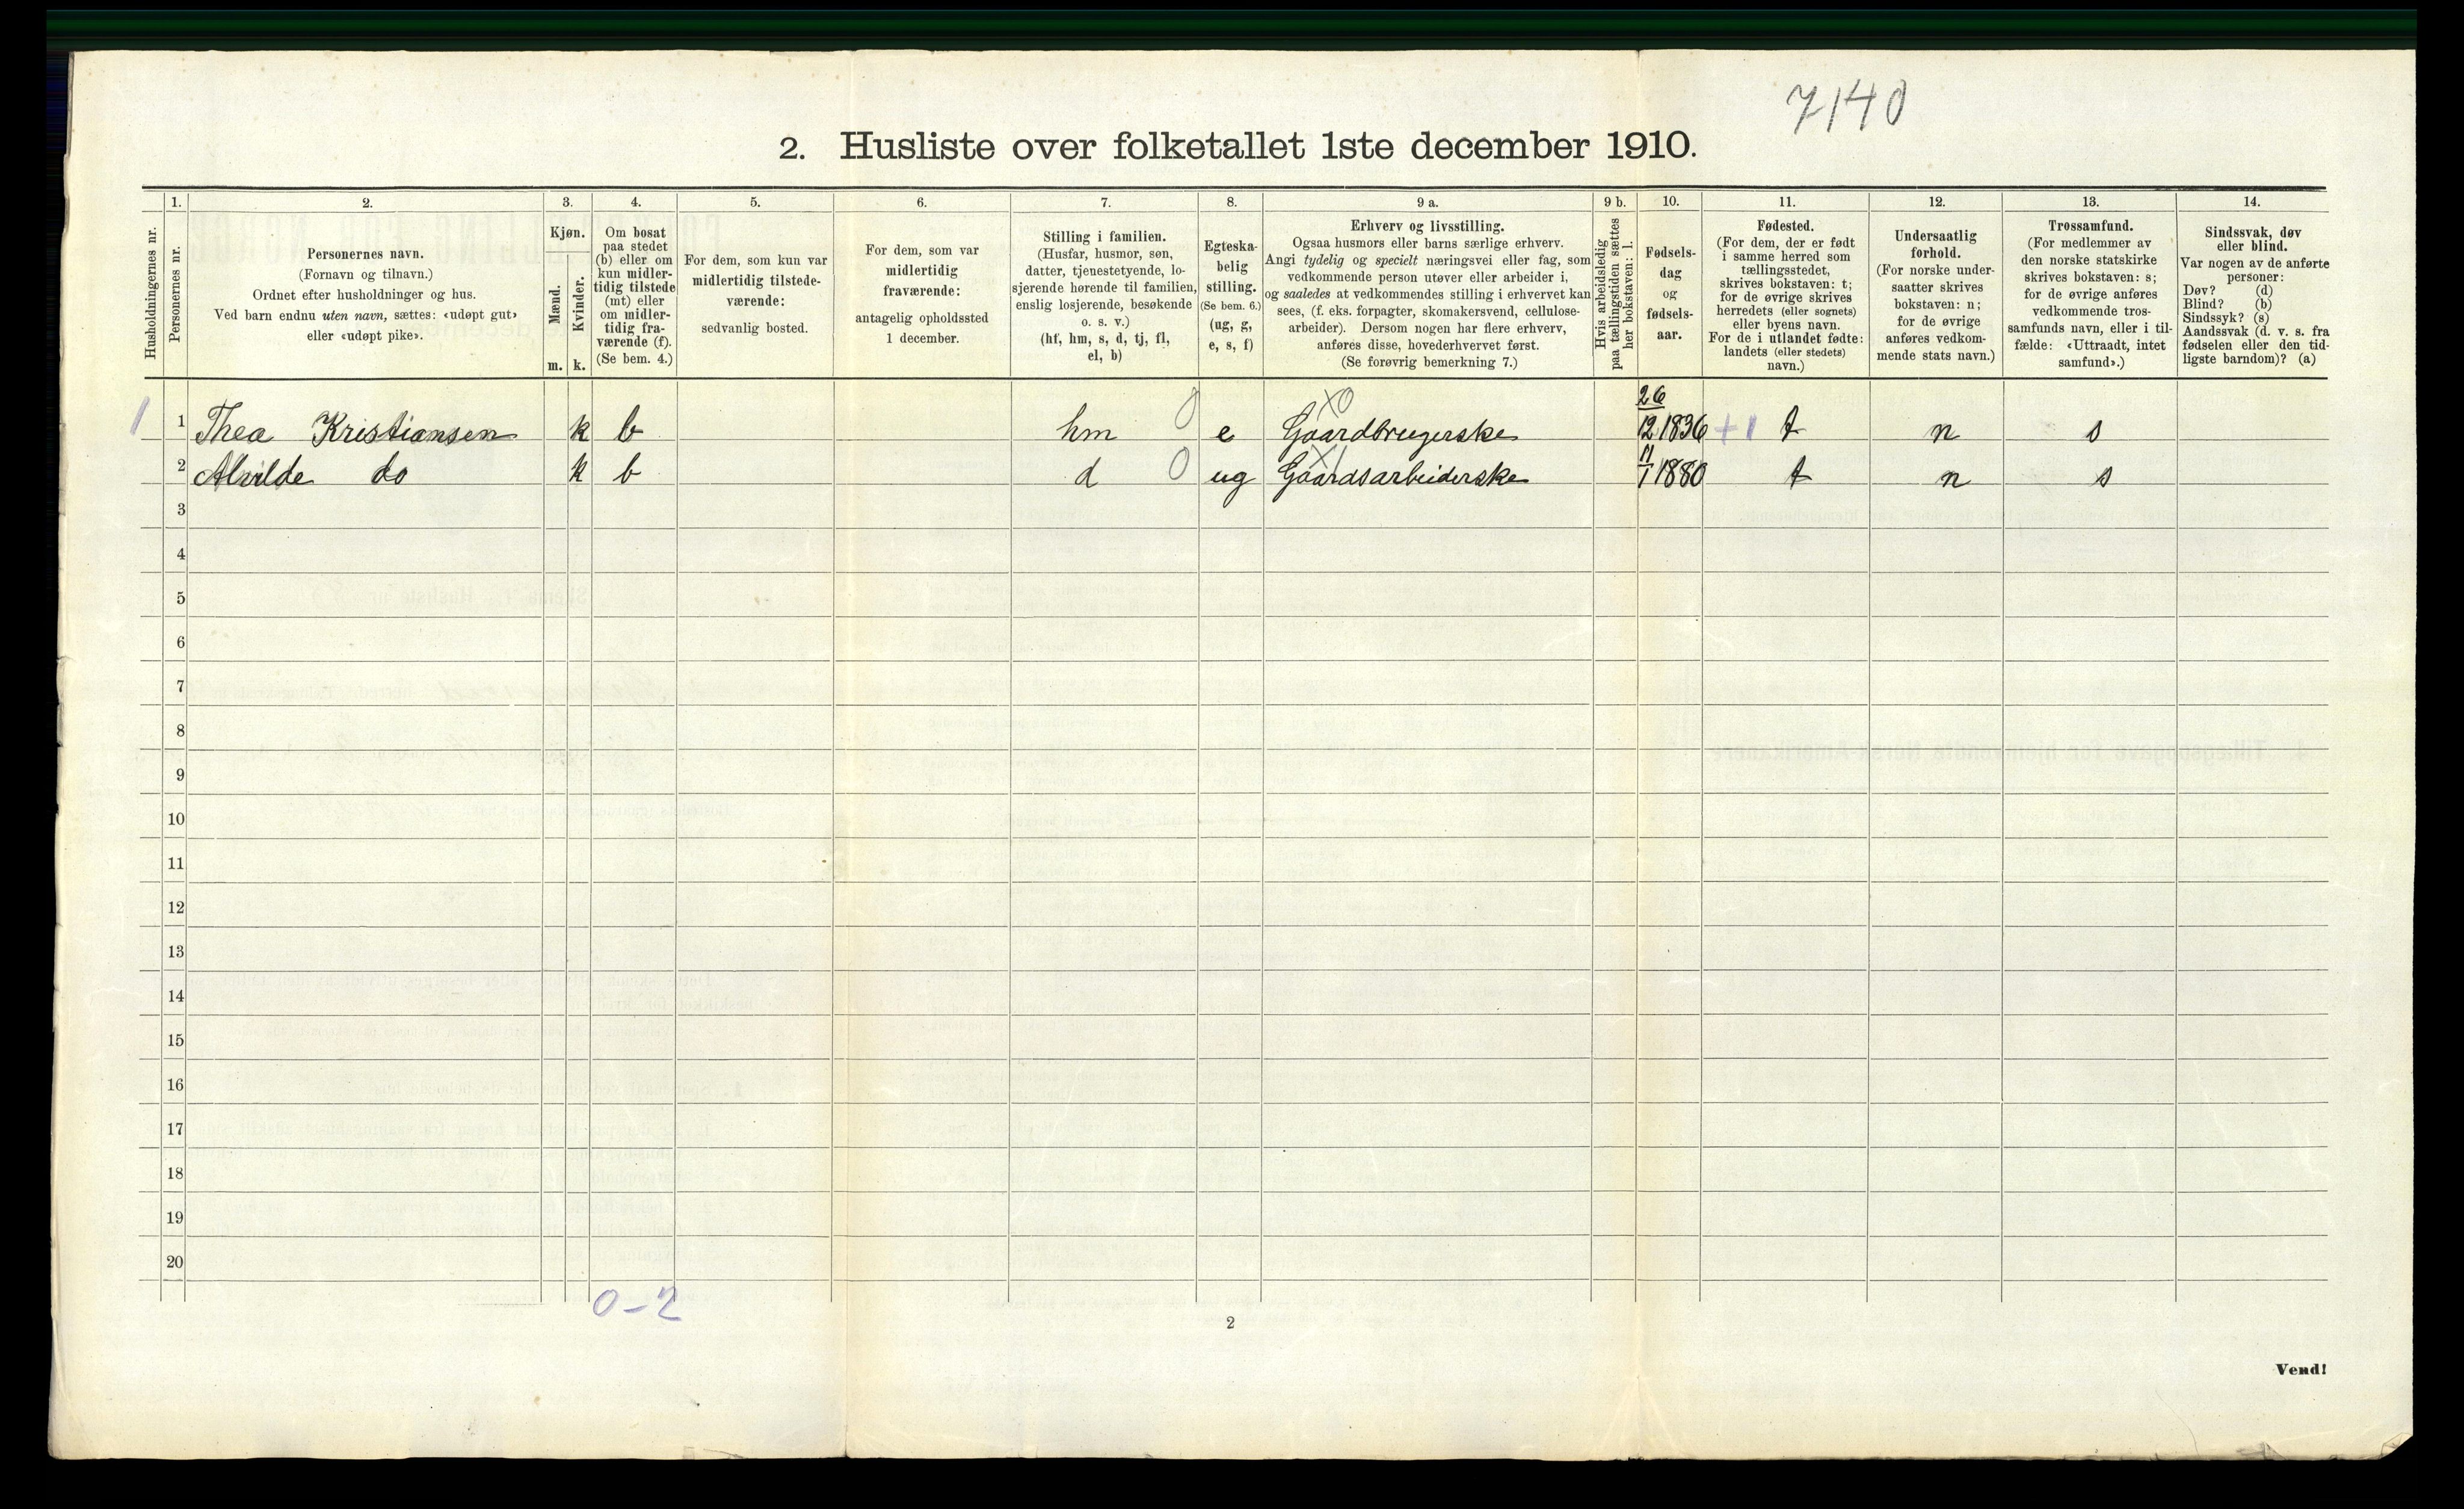 7140
2. Husliste over folketallet 1ste december 1910.
Husholdningernes nr.
1.
Personernes nr.
2.
Personernes navn.
(Fornavn og tilnavn.)
Ordnet efter husholdninger og hus.
Ved barn endnu uten navn, sættes: «udøpt gut»
eller «udøpt pike».
3.
Kjøn.
Mænd.
Kvinder.
m. k.
4.
Om bosat
paa stedet
(b) eller om
kun midler-
tidig tilstede
(mt) eller
om midler-
tidig fra-
værende (f).
(Se bem. 4.)
5.
For dem, som kun var
midlertidig tilstede-
værende:
sedvanlig bosted.
6.
For dem, som var
midlertidig
fraværende:
antagelig opholdssted
1 december.
7.
Stilling i familien.
(Husfar, husmor, søn,
datter, tjenestetyende, lo-
sjerende hørende til familien,
enslig losjerende, besøkende
o. s. v.)
(hf, hm, s, d, tj, fl,
el, b)
8.
Egteska-
belig
stilling.
(Se bem. 6.)
(ug, g,
e, s, f)
9 a.
Erhverv og livsstilling.
Ogsaa husmors eller barns særlige erhverv.
Angi tydelig og specielt næringsvei eller fag, som
vedkommende person utøver eller arbeider i,
og saaledes at vedkommendes stilling i erhvervet kan
sees, (f. eks. forpagter, skomakersvend, cellulose-
arbeider). Dersom nogen har flere erhverv,
anføres disse, hovederhvervet først.
(Se forøvrig bemerkning 7.)
9 b.
Hvis arbeidsledig
paa tællingstiden sættes
her bokstaven: l.
10.
Fødsels-
dag
og
fødsels-
aar.
11.
Fødested.
(For dem, der er født
i samme herred som
tællingsstedet,
skrives bokstaven: t;
for de øvrige skrives
herredets (eller sognets)
eller byens navn.
For de i utlandet fødte:
landets (eller stedets)
navn.)
12.
Undersaatlig
forhold.
(For norske under-
saatter skrives
bokstaven: n;
for de øvrige
anføres vedkom-
mende stats navn.)
13.
Trossamfund.
(For medlemmer av
den norske statskirke
skrives bokstaven: s;
for de øvrige anføres
vedkommende tros-
samfunds navn, eller i til-
fælde: «Uttraadt, intet
samfund».)
14.
Sindssvak, døv
eller blind.
Var nogen av de anførte
personer:
Døv? (d)
Blind? (b)
Sindssyk? (s)
Aandssvak (d. v. s. fra
fødselen eller den tid-
ligste barndom)? (a)
1 1 Thea Kristiansen k b hm 0 e Gaardbrugerske x0 26/12 1836 +1 t n s
2 Alvilde do k b d 0 ug Gaardsarbeiderske x1 11/1 1880 t n s
3
4
5
6
7
8
9
10
11
12
13
14
15
16
17
18
19
20
0-2
2
Vend!